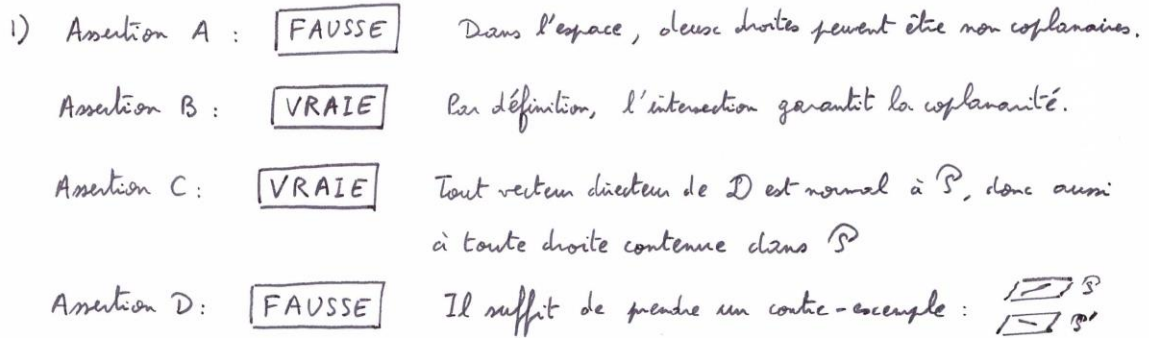 1) Assertion A : FAUSSE Dans l'espace, deux droites peuvent être non coplanaires.
Assertion B : VRAIE Par définition, l'intersection garantit la coplanarité.
Assertion C : VRAIE Tout vecteur directeur de D est normal à P, donc aussi
à toute droite contenue dans P
Assertion D : FAUSSE Il suffit de prendre un contre-exemple : P
P'